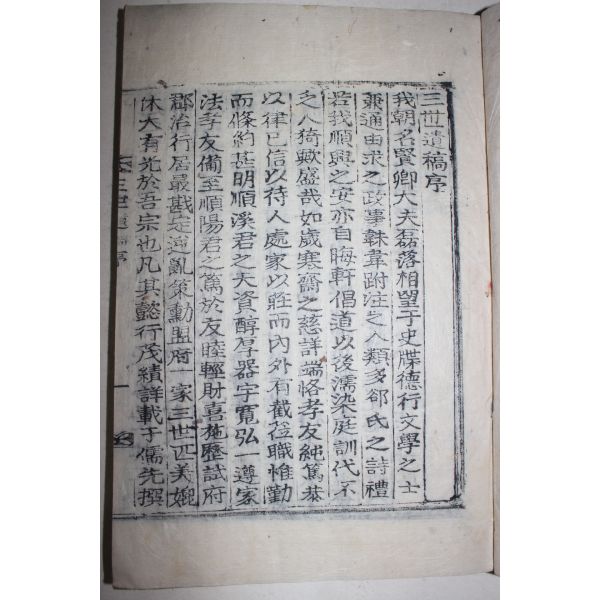 三世遺稿序
我朝名賢卿大夫磊落相望于史牒德行文學之士
兼通由求之政事韎韋跗注之人類多郤氏之詩禮
若我順興之安亦自晦軒倡道以後濡染庭訓代不
乏人猗歟盛哉如歲寒齋之慈詳端恪孝友純篤恭
以律己信以待人處家以莊而內外有截莅職惟勤
而條約甚明順溪君之天資醇厚器宇寬弘一遵家
法孝友備至順陽君之篤於友睦輕財喜施歷試府
郡治行居最戡定逆亂策勳盟府一家三世匹美媲
休大有光於吾宗也凡其懿行茂績詳載于儒先撰
三世遺稿序
一